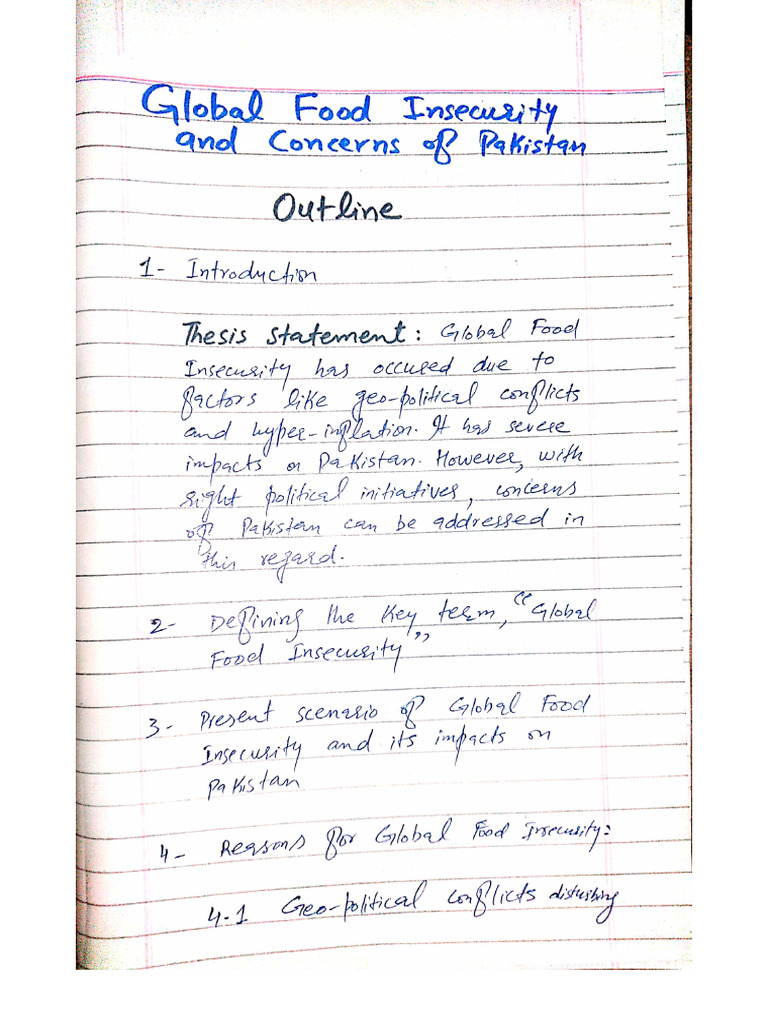 Global Food Insecurity
and Concerns of Pakistan
Outline
1- Introduction
Thesis statement: Global Food
Insecurity has occused due to
factors like geo-political conflicts
and hyper-inflation. It has severe
impacts on Pakistan. However, with
right political initiatives, concerns
of Pakistan can be addressed in
this regard.
2- Defining the key term, "Global
Food Insecurity"
3- Present scenario of Global Food
Insecurity and its impacts on
Pakistan
4- Reasons for Global Food Insecurity:
4.1 Geo-political conflicts disturbing